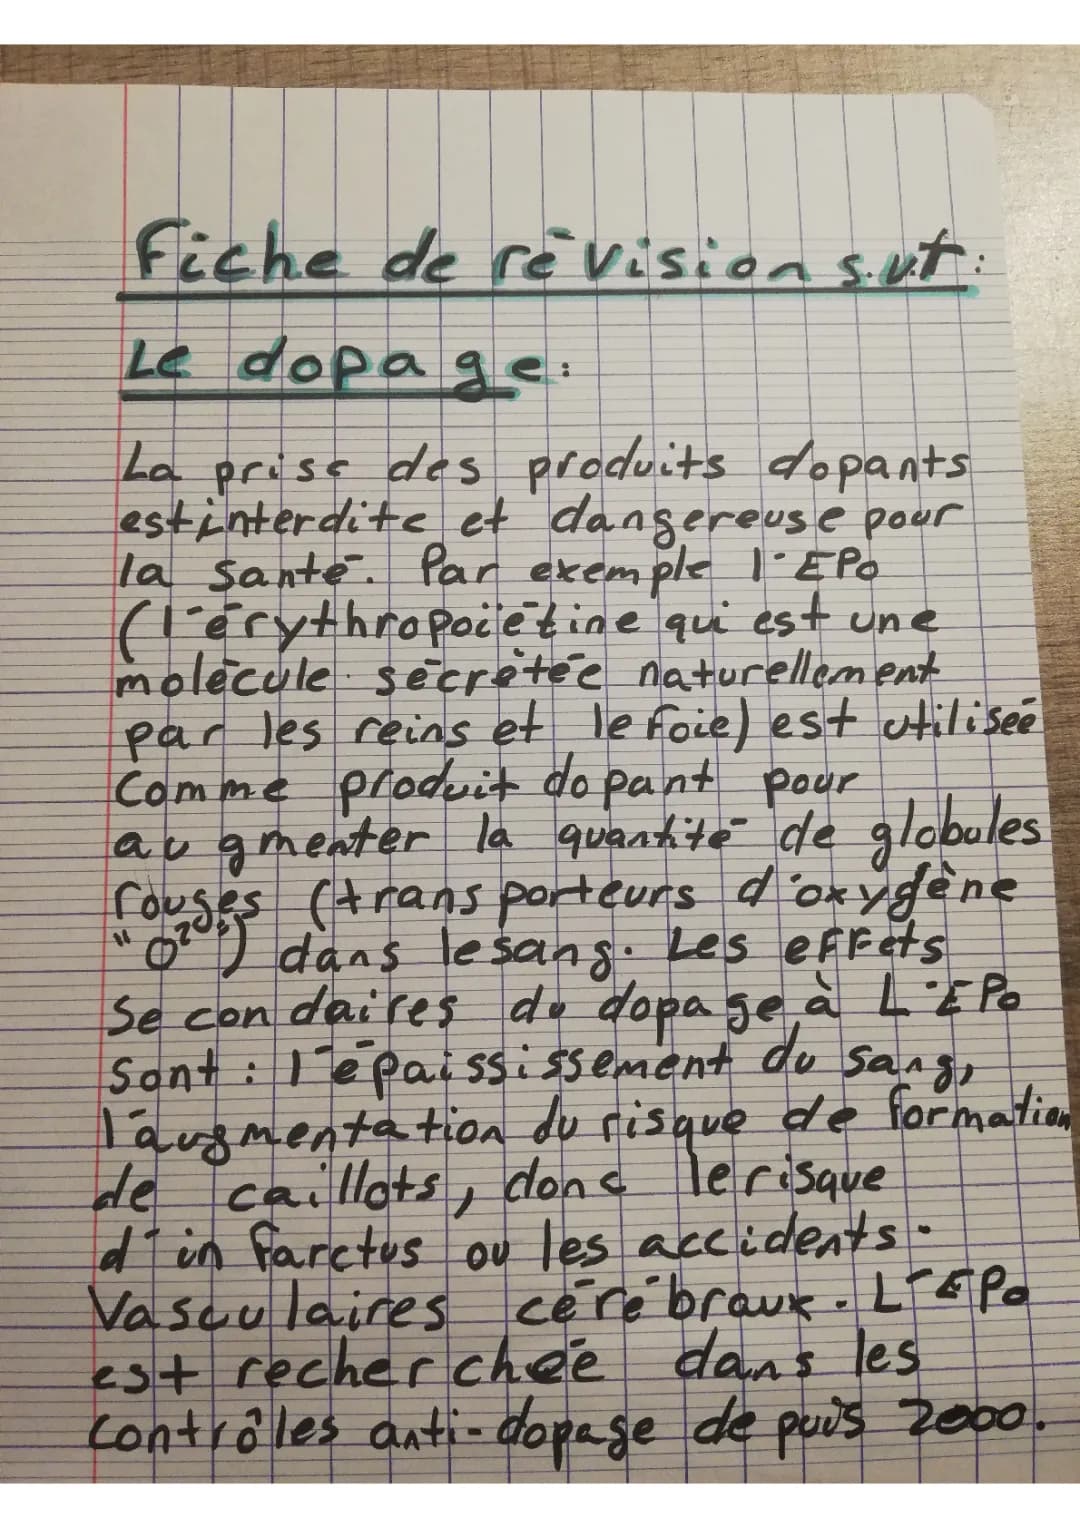 Fiche de révision s.v.t:
Le dopage:
La prise des produits dopants
est interdite et dangereuse pour
la santé. Par exemple l'EPO
(l'érythropoïétine qui est une
molécule sécrétée naturellement
par les reins et le foie) est utilisée
comme produit dopant pour
augmenter la quantité de globules
rouges (transporteurs d'oxygène
"O²") dans le sang. Les effets
secondaires du dopage à L'EPO
sont : l'épaississement du sang,
l'augmentation du risque de formation
de caillots, donc le risque
d'infarctus ou les accidents-
Vasculaires cérébraux. L'EPO
est recherchée dans les
contrôles anti-dopage depuis 2000.